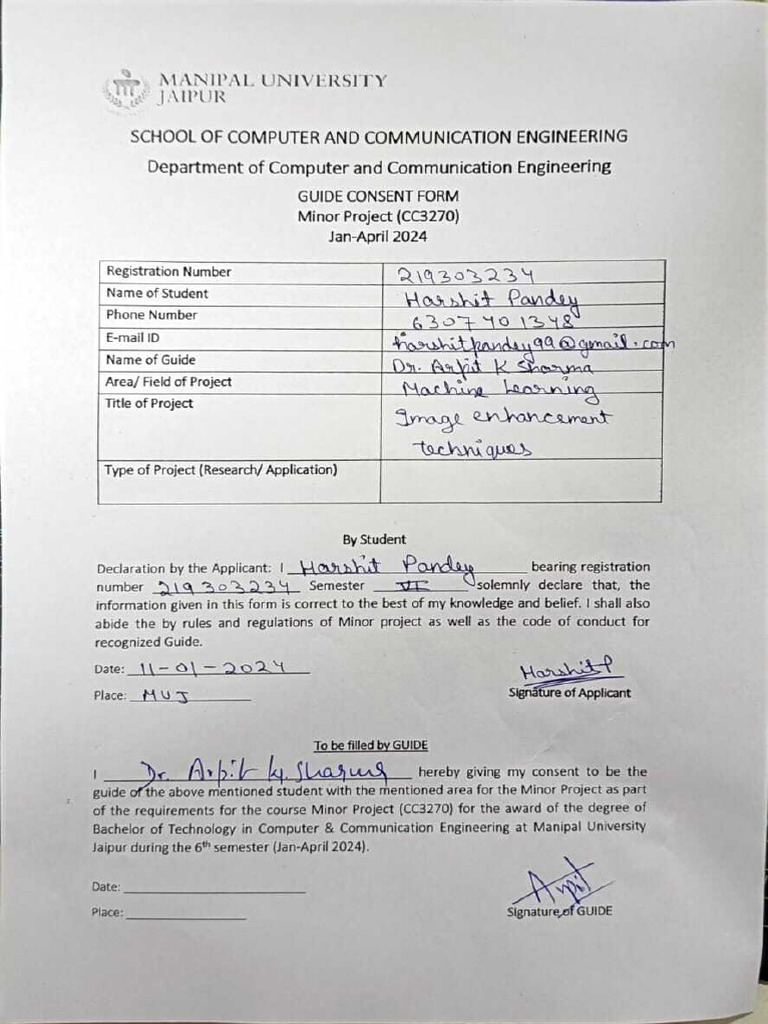 MANIPAL UNIVERSITY
JAIPUR
SCHOOL OF COMPUTER AND COMMUNICATION ENGINEERING
Department of Computer and Communication Engineering
GUIDE CONSENT FORM
Minor Project (CC3270)
Jan-April 2024
Registration Number 219303234
Name of Student Harshit Pandey
Phone Number 6307401348
E-mail ID harshitpandey99@gmail.com
Name of Guide Dr. Arpit K Sharma
Area/ Field of Project Machine Learning
Title of Project Image enhancement
techniques
Type of Project (Research/ Application)
By Student
Declaration by the Applicant: I Harshit Pandey bearing registration
number 219303234 Semester VI solemnly declare that, the
information given in this form is correct to the best of my knowledge and belief. I shall also
abide the by rules and regulations of Minor project as well as the code of conduct for
recognized Guide.
Date: 11-01-2024
Harshit P
Place: MUJ
Signature of Applicant
To be filled by GUIDE
I Dr. Arpit K. Sharma hereby giving my consent to be the
guide of the above mentioned student with the mentioned area for the Minor Project as part
of the requirements for the course Minor Project (CC3270) for the award of the degree of
Bachelor of Technology in Computer & Communication Engineering at Manipal University
Jaipur during the 6th semester (Jan-April 2024).
Date:
Arpit
Place:
Signature of GUIDE